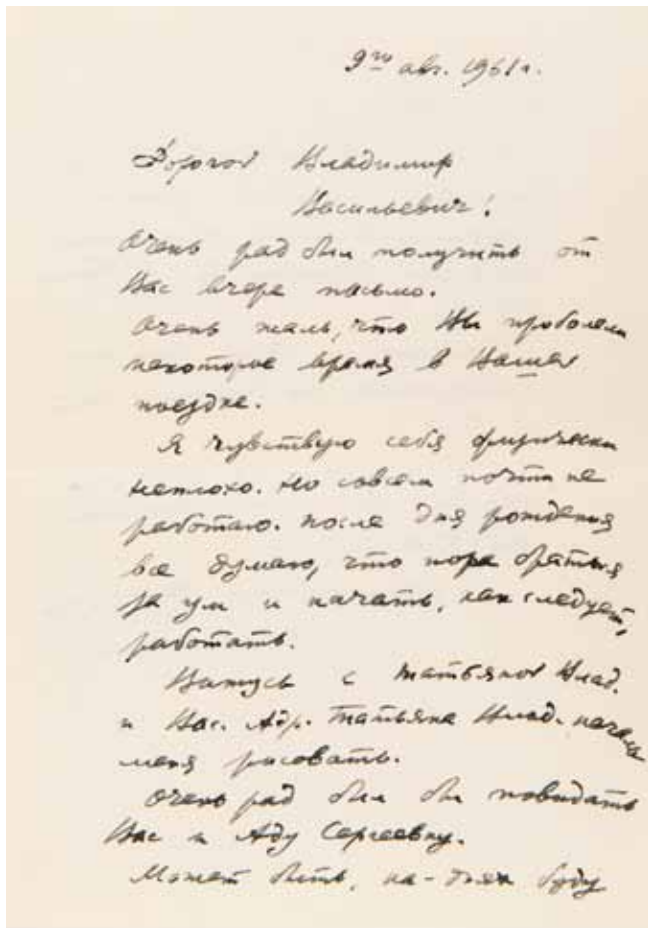 9го авг. 1961г.
Дорогой Владимир
Васильевич!
Очень рад был получить от
Вас вчера письмо.
Очень жаль, что Вы проболели
некоторое время в Вашей
поездке.
Я чувствую себя физически
неплохо. Но совсем почти не
работаю. После дня рождения
все думаю, что пора браться
за ум и начать, как следует,
работать.
с Татьяной Влад.
и Вас. Адр. Татьяна Влад. начала
меня рисовать.
Очень рад был бы повидать
Вас и Аду Сергеевну.
Может быть, на-днях буду